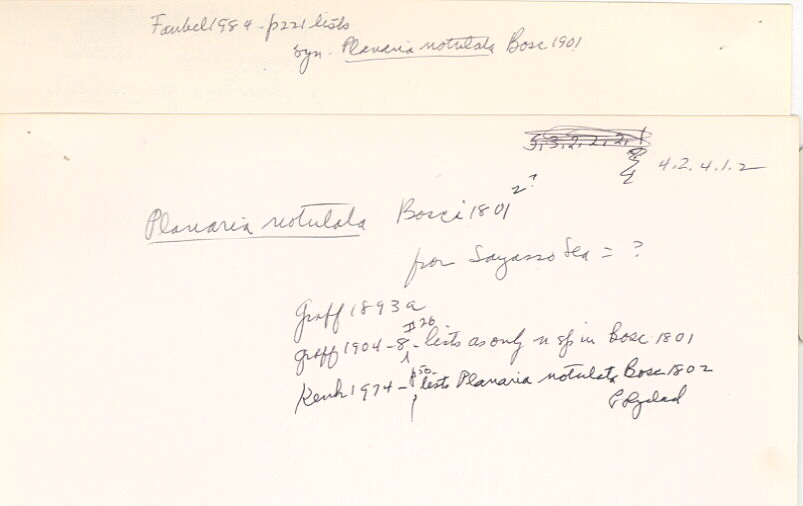 Faubel 1984 - p221 lists
syn. Planaria notulata Bosc 1901
5,3,2,2,2,1
4.2.4.1.2
2?
Planaria notulata Bosci 1801
for Sagasso Sea = ?
Graff 1893a
II 26
Graff 1904-8 - lists as only n sp in Bosc 1801
p50-
Kenk 1974 - lists Planaria notulata Bosc 1802
Polyclad